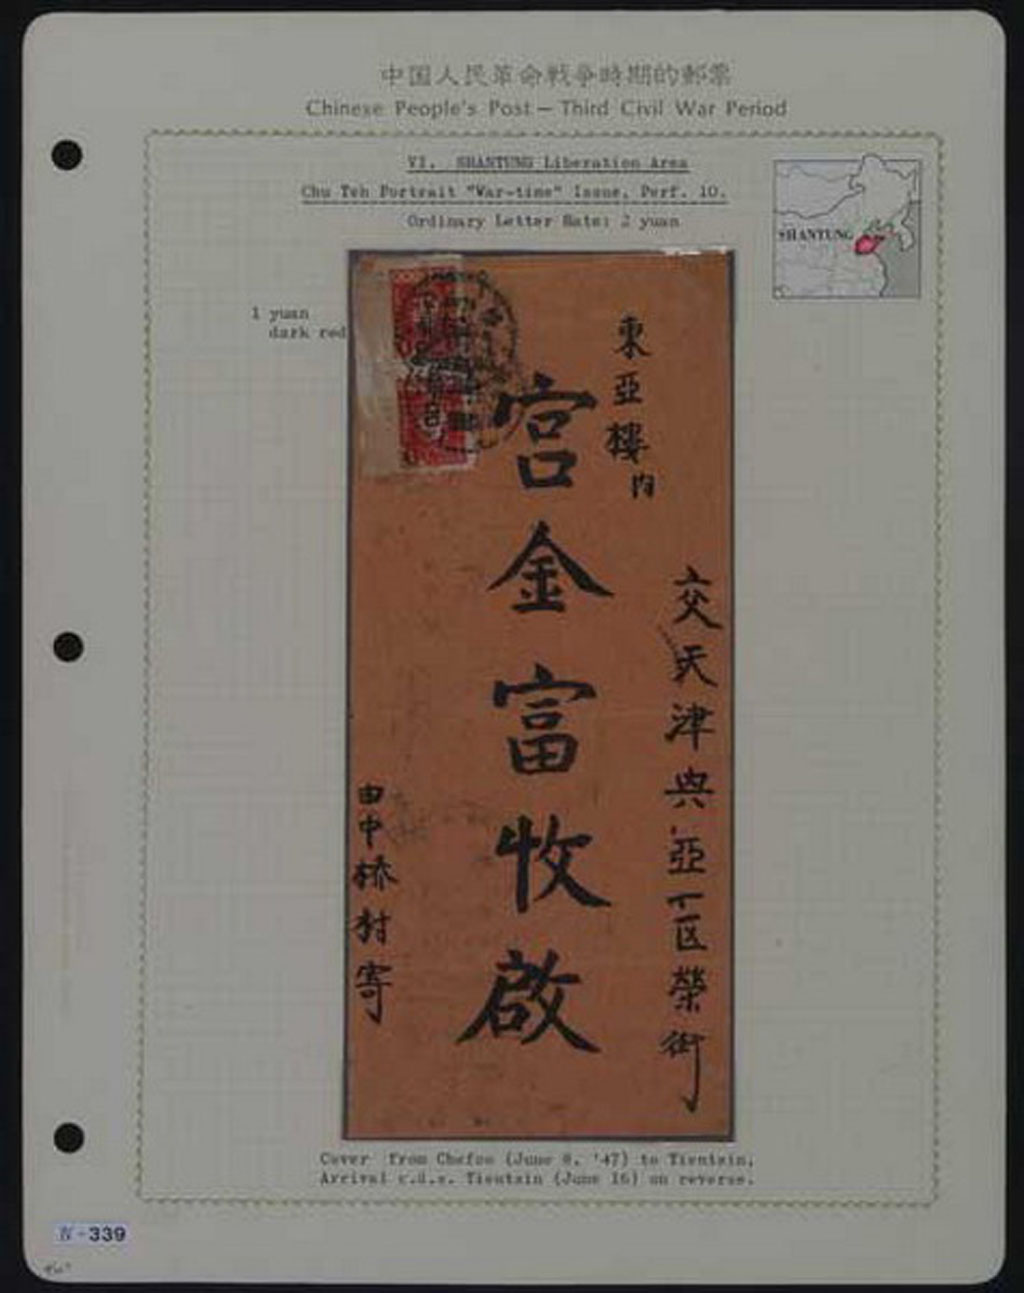 中国人民革命戦争時期的郵票
Chinese People's Post — Third Civil War Period
VI. SHANTUNG Liberation Area
Chu Teh Portrait "War-time" Issue, Perf. 10.
Ordinary Letter Rate: 2 yuan
SHANTUNG
1 yuan
dark red
東亞樓内
交天津興亞一区榮街
宮金富收啟
由中橋村寄
Cover from Chefoo (June 8, '47) to Tientsin.
Arrival c.d.s. Tientsin (June 16) on reverse.
339